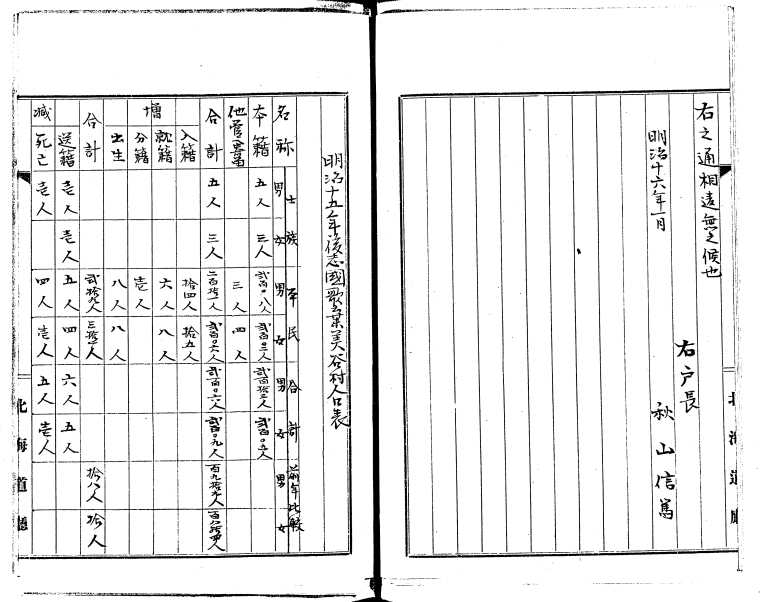 右之通相違無之候也
明治十六年一月
右戸長
秋山信篤
北海道廳
明治十五年後志國歌棄郡美谷村人口表
名称 士族 平民 合計 前年比較
男 女 男 女 男 女 男 女
本籍 五人 三人 弐百〇八人 弐百〇二人 弐百拾三人 弐百〇五人
他管寄留 三人 四人
合計 五人 三人 二百十一人 弐百〇六人 弐百〇九人
増 入籍 拾四人 拾五人
就籍 六人 八人
分籍 壱人
出生 八人 八人
合計 弐拾九人 三拾一人 拾八人 拾人
減 送籍 壱人 壱人 五人 四人 六人 五人
死亡 壱人 四人 壱人 五人 壱人
北海道廳